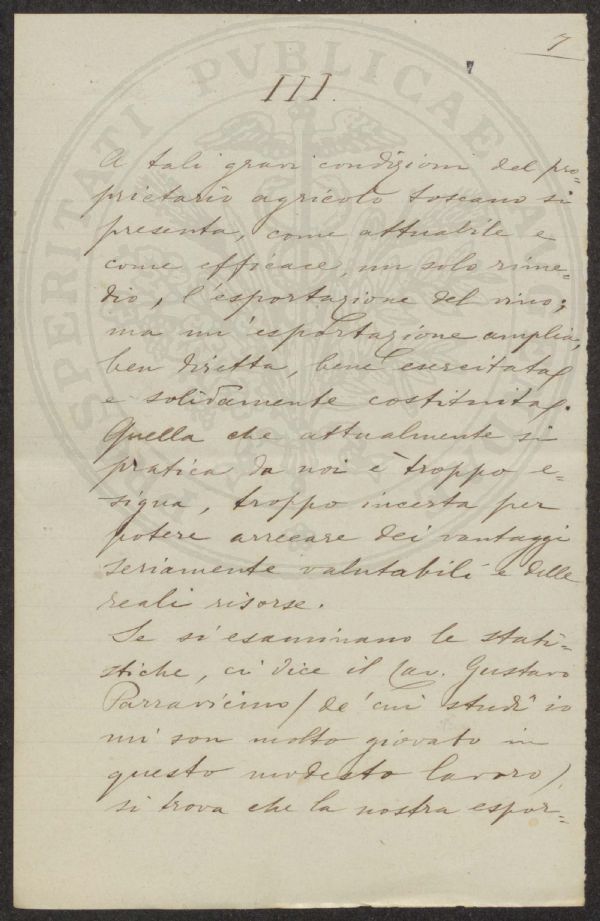 7
7
III.
A tali gravi condizioni del pro=
prietario agricolo toscano si
presenta, come attuabile e
come efficace, un solo rime=
dio, l'esportazione del vino;
ma un'esportazione amplia,
ben diretta, bene esercitata
e solidamente costituita.
Quella che attualmente si
pratica da noi è troppo e=
sigua, troppo incerta per
potere arrecare dei vantaggi
seriamente valutabili e delle
reali risorse.
Se si esaminano le stati=
stiche, ci dice il Cav. Gustavo
Parravicino (de' cui studî io
mi son molto giovato in
questo modesto lavoro)
si trova che la nostra espor=